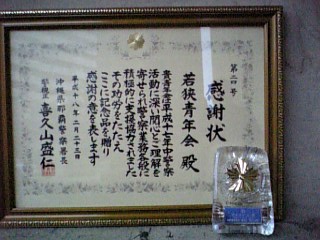 第二四号
感謝状
若狭青年会 殿
貴青年会は平成十七年中警察
活動に深い関心とご理解を
寄せられ警察業務各般に
積極的に支援協力されました
その功労をたたえ
ここに記念品を贈り
感謝の意を表します
平成十八年二月二十三日
沖縄県那覇警察署長
警視正 喜久山盛仁